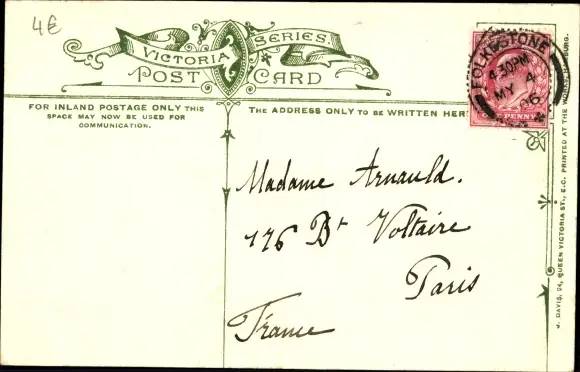 4€
VICTORIA SERIES.
POST CARD
FOR INLAND POSTAGE ONLY THIS
SPACE MAY NOW BE USED FOR
COMMUNICATION.
THE ADDRESS ONLY TO BE WRITTEN HER
FOLKESTONE
4.30PM
MY 4
06
PENNY
Madame Arnauld.
176 Bt Voltaire
Paris
France
J. DAVIS, 24, QUEEN VICTORIA ST., E.C. PRINTED AT THE WORKS